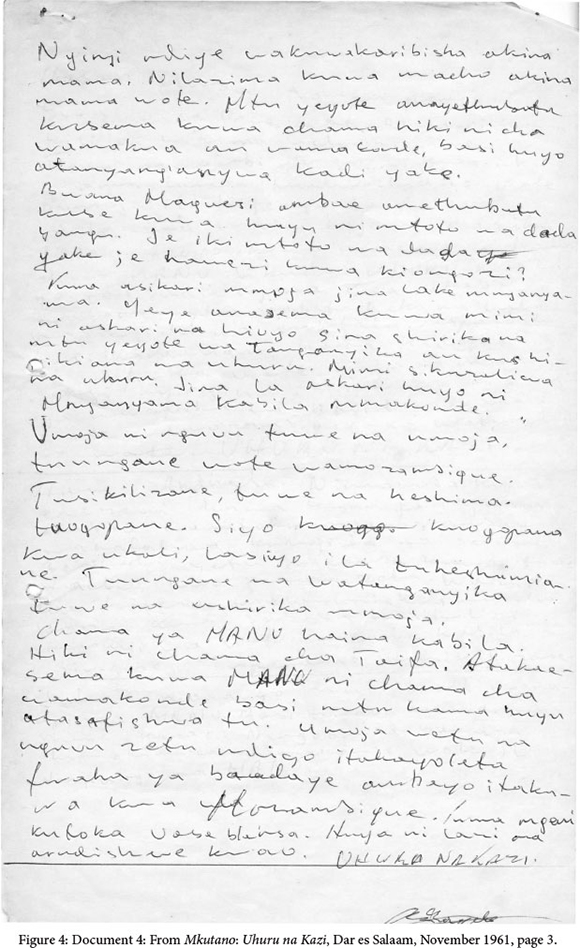 Nyinyi ndiye wakuwakaribisha akina
mama. Nilazima kuwa macho akina
mama wote. Mtu yeyote anayethubutu
kusema kuwa chama hiki ni cha
wamakua au wamakonde, basi huyo
atanyangianywa kadi yake.
Bwana Maguesi ambae amethubutu
kuse kuwa huyu ni mtoto wa dada
yangu. Je iki mtoto wa dada
yake je hawezi kuwa kiongozi?
Kuna asikari mmoja jina lake mnyanya-
ma. Yeye anasema kuwa mimi
ni askari na hivyo sina shirika na
mtu yeyote wa Tanganyika au kushi-
rikiana na uhuru. Mimi sikuzaliwa
na uhuru. Jina la askari huyo ni
kabila mmakonde."
Umoja ni nguvu tuwe na umoja,
tuungane wote wamozambique.
Tusikilizane, tuwe na heshima.
tuogopane. Siyo kuogopana
kwa ukali, lasiyo ila tuheshimia-
ne. Tuungane na watanganyika
tuwe na ushirika mmoja.
Chama ya MANU haina kabila.
Hiki ni chama cha Taifa. Atakae-
sema kuwa MANU ni chama cha
wamakonde basi mtu kama huyu
atasafishwa tu. Umoja wetu na
nguvu zetu ndiyo itakayoleta
furaha ya baadaye ambayo itaku-
wa kwa Mozambique. Kuna mgeni
kutoka Huja ni lazima
arudishwe kwao. UHURU NA KAZI.
Figure 4: Document 4: From Mkutano: Uhuru na Kazi, Dar es Salaam, November 1961, page 3.